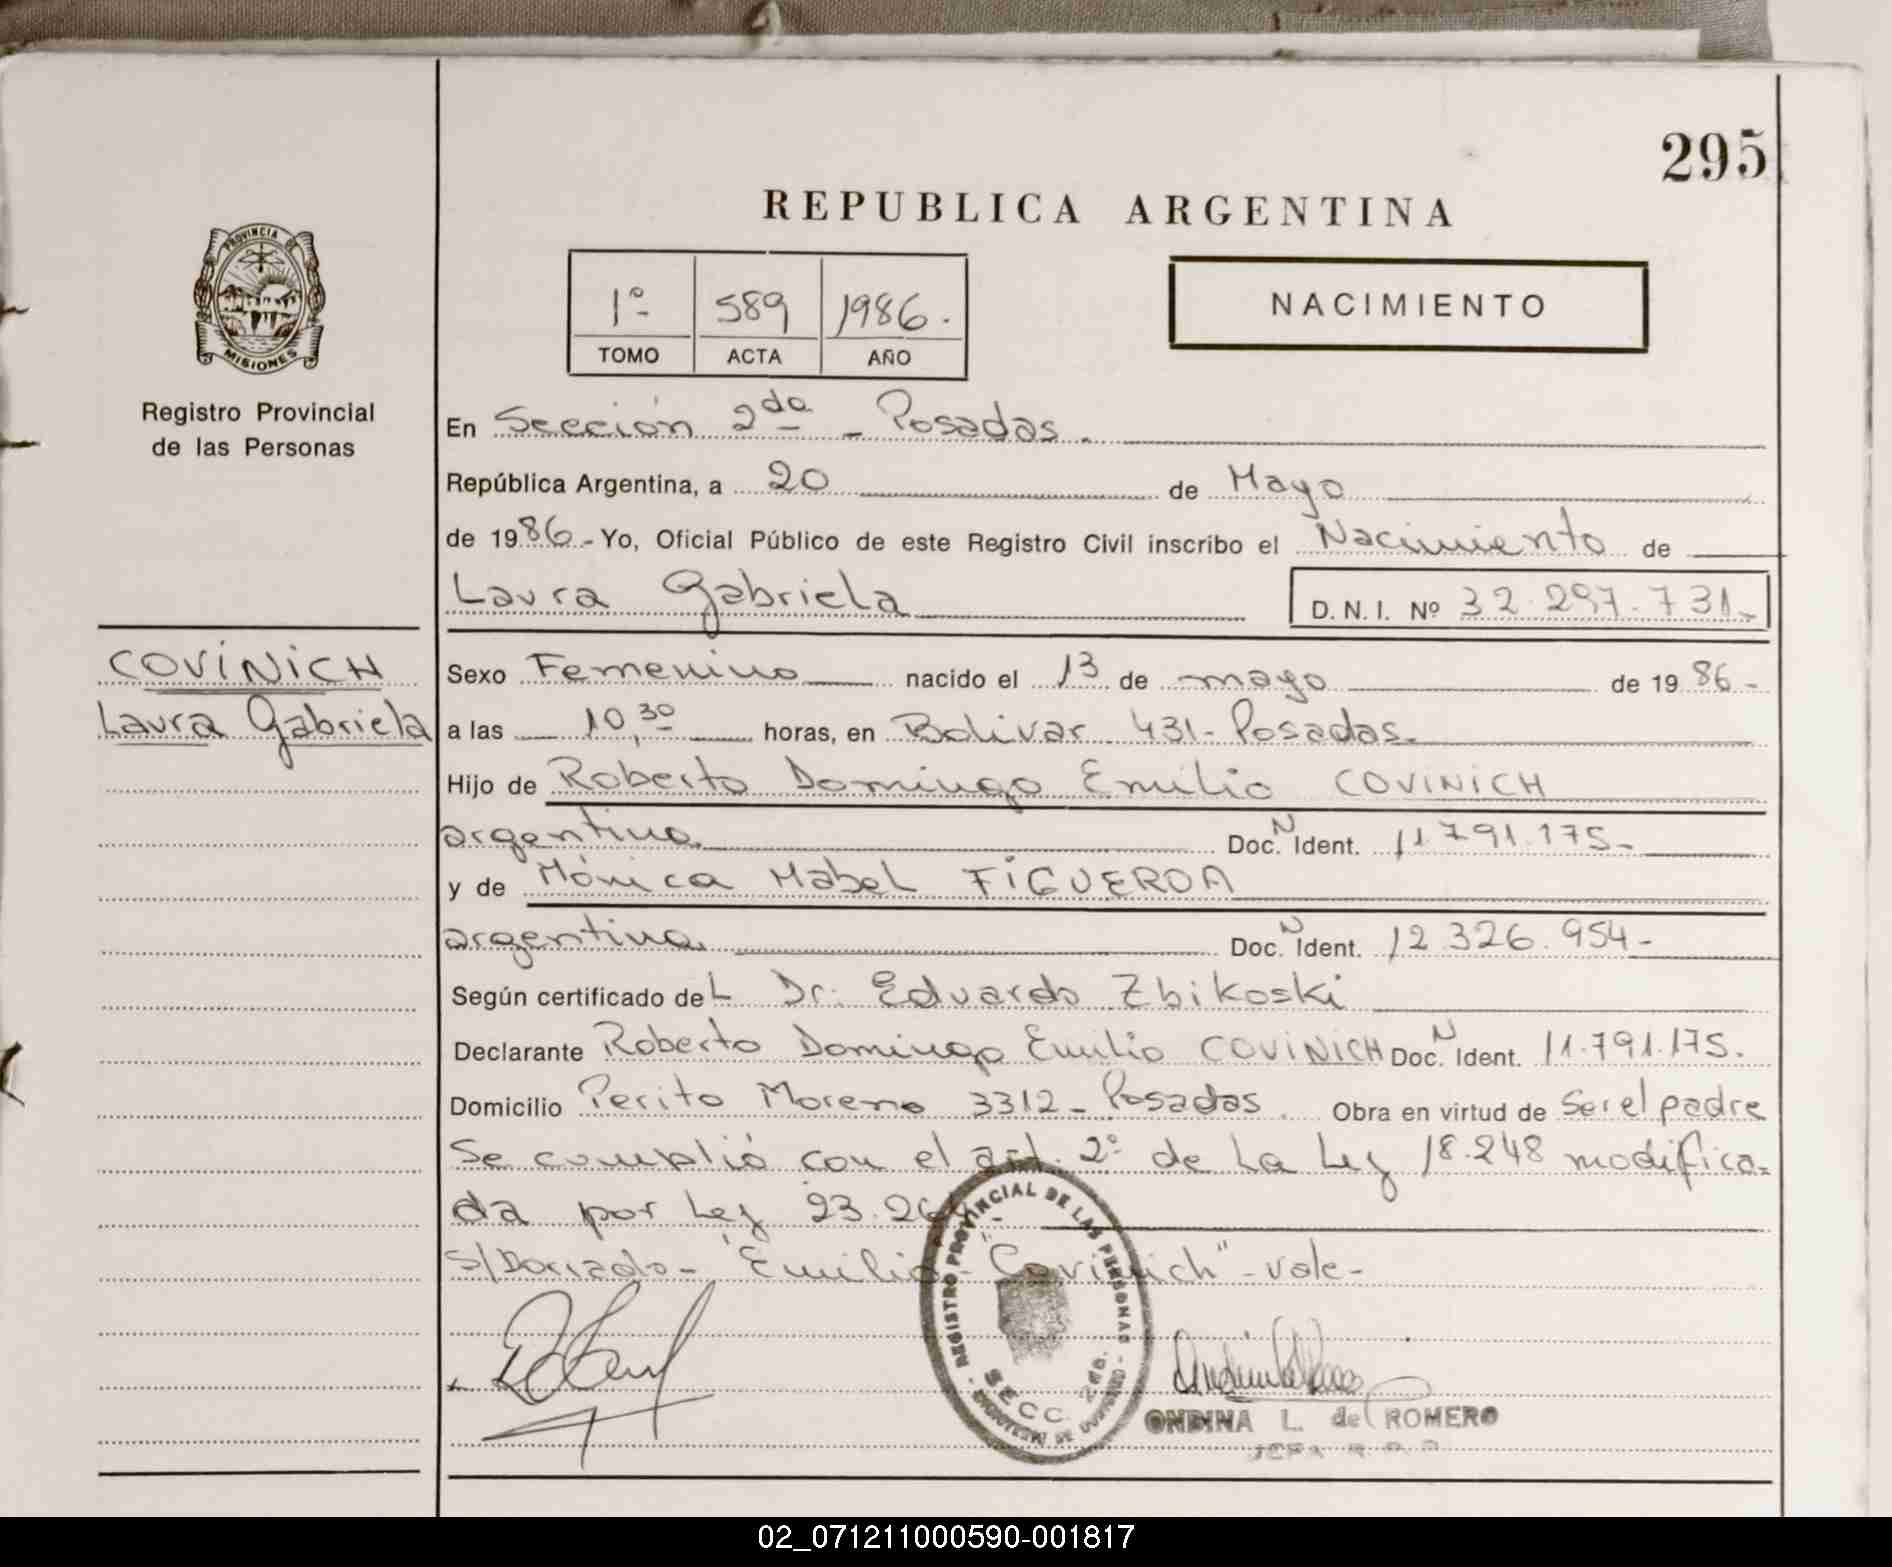 295
REPUBLICA ARGENTINA
PROVINCIA DE
MISIONES
1º 589 1986.
TOMO ACTA AÑO
NACIMIENTO
Registro Provincial
de las Personas
En Sección 2da - Posadas.
República Argentina, a 20 de Mayo
de 1986.- Yo, Oficial Público de este Registro Civil inscribo el Nacimiento de
Laura Gabriela D. N. I. Nº 32.297.731-
COVINICH
Laura Gabriela
Sexo Femenino nacido el 13 de mayo de 1986-
a las 10,30 horas, en Bolivar 431- Posadas.
Hijo de Roberto Domingo Emilio COVINICH
argentino. Doc. N Ident. 11.791.175-
y de Mónica Mabel FIGUEROA
argentina. Doc. N Ident. 12.326.954-
Según certificado del Dr. Eduardo Zbikoski
Declarante Roberto Domingo Emilio COVINICH Doc. N Ident. 11.791.175.
Domicilio Perito Moreno 3312- Posadas. Obra en virtud de ser el padre
Se cumplió con el art. 2º de la Ley 18.248 modifica-
da por Ley
S/Borrado- "Emilio- "Covinich"- vale-
REGISTRO PROVINCIAL DE LAS PERSONAS
SECC. 2da.
ONDINA L. de ROMERO
02_071211000590-001817